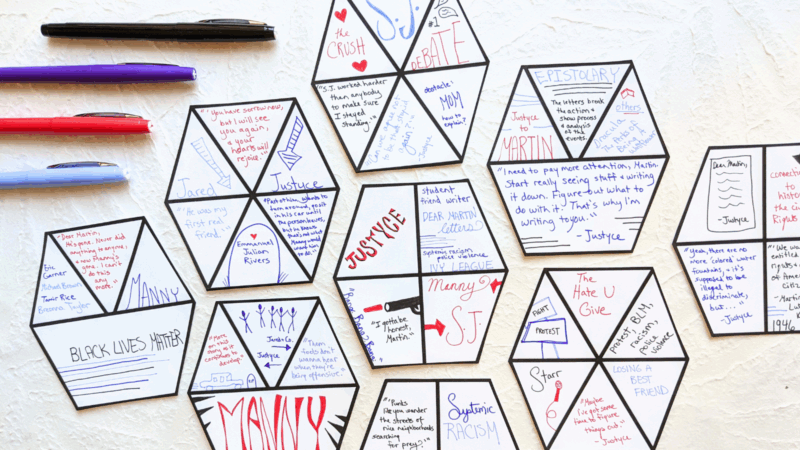 the
CRUSH
S.J.
#1
DEBATE
"S.J. worked harder
than anybody
to make sure
I stayed
standing."
obstacle:
MOM
how to
explain?
"You have sorrow now,
but I will see
you again,
& your
hearts will
rejoice."
Jared
Justyce
"He was my
first real
friend."
Emmanuel
Julian
Rivers
EPISTOLARY
Justyce
to
MARTIN
The letters break
the action &
show process
& analysis
of the
events.
others:
"I need to pay more attention, Martin.
Start really seeing staff & writing
it down. Figure out what to
do with it. That's why I'm
writing to you."
- Justyce
JUSTYCE
student
friend writer
DEAR MARTIN
letters
systemic racism
police violence
IVY LEAGUE
"I gotta be
honest,
Martin."
Manny
S.J.
Dear Martin,
- Justyce
connection
to
history
the Civil
Rights
"Yeah, there are no
more 'colored' water
fountains, & it's
supposed to be
illegal to
discriminate,
but...
- Justyce
1946
"Dear Martin,
He's gone. Never did
anything to anyone, &
now Manny's
gone. I can't
do this
any
more."
Eric
Garner
Michael Brown
Tamir Rice
Breonna Taylor
MANNY
BLACK LIVES MATTER
Jared & Co.
Justyce
"Them
fools don't
wanna hear
when they're
being offensive."
MANNY
The
Hate U
Give
FIGHT
PROTEST
protest, BLM,
racism,
police
violence
Starr
LOSING A
BEST
FRIEND
"Maybe
I've got some
time to figure
things out."
- Justyce
"'Punks
like you wander
the streets of
nice neighborhoods
searching
for prey.'"
Systemic
RACISM